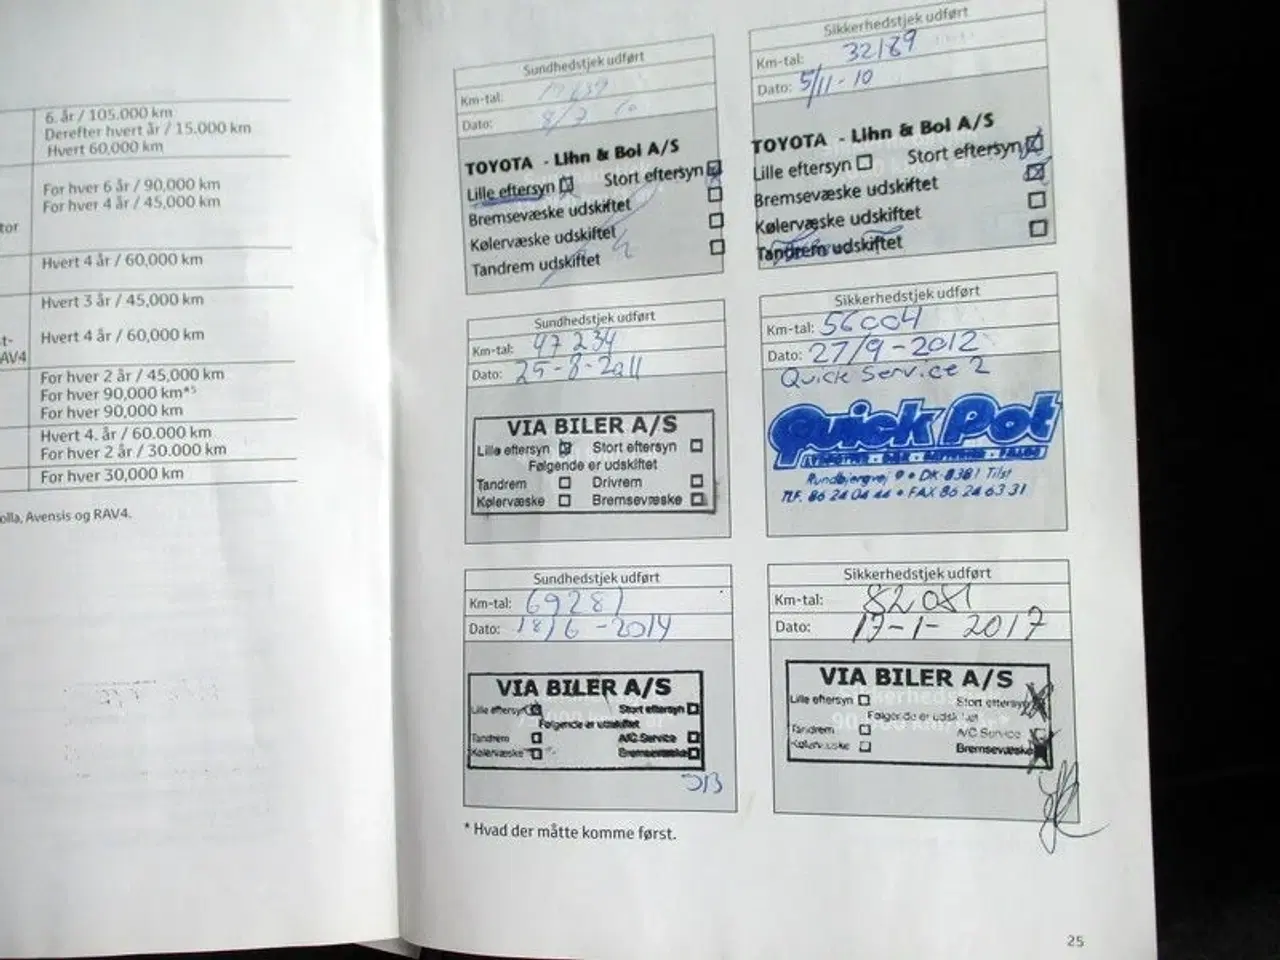 6. år / 105.000 km
Derefter hvert år / 15.000 km
Hvert 60,000 km
For hver 6 år / 90,000 km
For hver 4 år / 45,000 km
tor
Hvert 4 år / 60,000 km
Hvert 3 år / 45,000 km
t-
Hvert 4 år / 60,000 km
AV4
For hver 2 år / 45,000 km
For hver 90,000 km*5
For hver 90,000 km
Hvert 4. år / 60.000 km
For hver 2 år / 30.000 km
For hver 30,000 km
olla, Avensis og RAV4.
Sundhedstjek udført
Km-tal:
Dato: 8/7 10
TOYOTA - Lihn & Bol A/S
Lille eftersyn Stort eftersyn
Bremsevæske udskiftet
Kølervæske udskiftet
Tandrem udskiftet
Sikkerhedstjek udført
Km-tal: 32189
Dato: 5/11-10
TOYOTA - Lihn & Bol A/S
Lille eftersyn Stort eftersyn
Bremsevæske udskiftet
Kølervæske udskiftet
Tandrem udskiftet
Sundhedstjek udført
Km-tal: 47 234
Dato: 25-8-2011
VIA BILER A/S
Lille eftersyn Stort eftersyn
Følgende er udskiftet
Tandrem Drivrem
Kølervæske Bremsevæske
Sikkerhedstjek udført
Km-tal: 56004
Dato: 27/9-2012
Quick Service 2
Quick Pot
Rundbjergvej 9 • DK-8381 Tilst
TLF. 86 24 04 44 • FAX 86 24 63 31
Sundhedstjek udført
Km-tal: 69281
Dato: 18/6-2014
VIA BILER A/S
Lille eftersyn Stort eftersyn
Følgende er udskiftet
Tandrem A/C Service
Kølervæske Bremsevæske
Sikkerhedstjek udført
Km-tal: 82081
Dato: 17-1-2017
VIA BILER A/S
Lille eftersyn Stort eftersyn
Følgende er udskiftet
Tandrem A/C Service
Kølervæske Bremsevæske
* Hvad der måtte komme først.
25